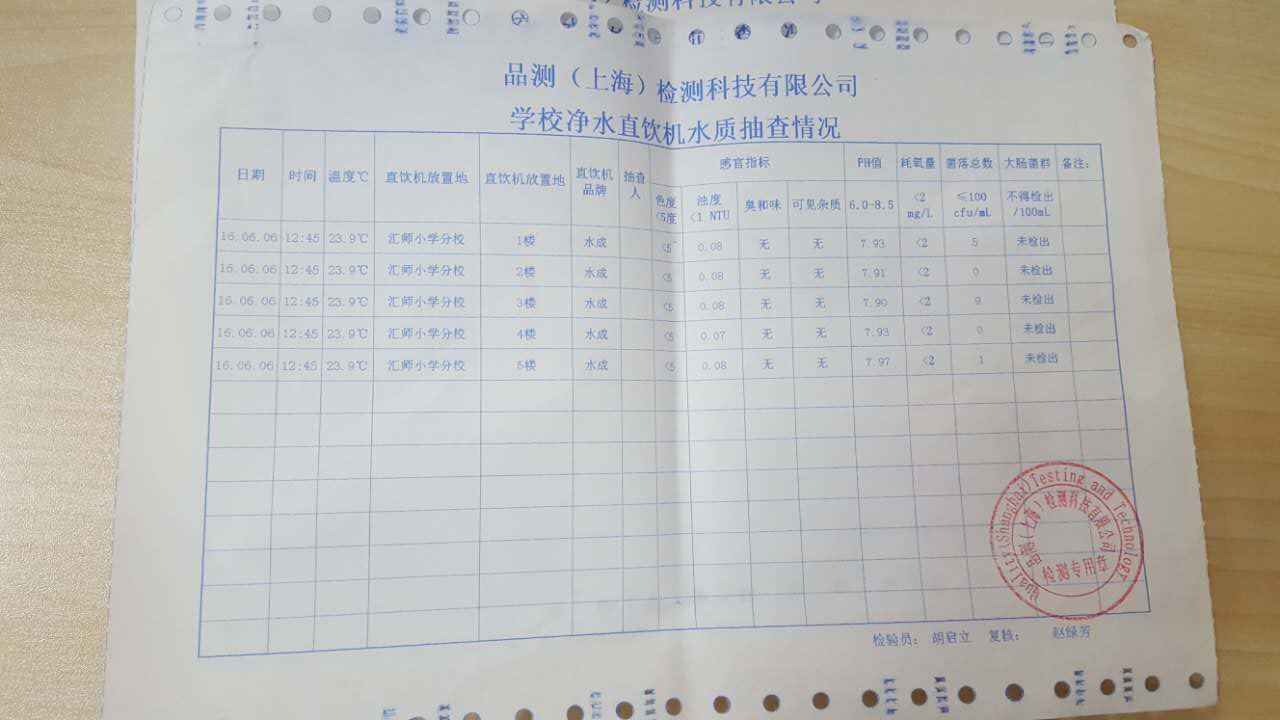 检测科技有限公司
品测（上海）检测科技有限公司
学校净水直饮机水质抽查情况
日期 时间 温度℃ 直饮机放置地 直饮机放置地 直饮机品牌 抽查人 感官指标 PH值 耗氧量 菌落总数 大肠菌群 备注：
色度<5度 浊度<1 NTU 臭和味 可见杂质 6.0-8.5 <2 mg/L ≤100 cfu/mL 不得检出/100mL
16.06.06 12:45 23.9℃ 汇师小学分校 1楼 水成 <5 0.08 无 无 7.93 <2 5 未检出
16.06.06 12:45 23.9℃ 汇师小学分校 2楼 水成 <5 0.08 无 无 7.91 <2 0 未检出
16.06.06 12:45 23.9℃ 汇师小学分校 3楼 水成 <5 0.08 无 无 7.90 <2 9 未检出
16.06.06 12:45 23.9℃ 汇师小学分校 4楼 水成 <5 0.07 无 无 7.93 <2 0 未检出
16.06.06 12:45 23.9℃ 汇师小学分校 5楼 水成 <5 0.08 无 无 7.97 <2 1 未检出
Quality(Shanghai)Testing and Technology
品测(上海)检测科技有限公司
检测专用章
检验员： 胡启立 复核： 赵绿芳